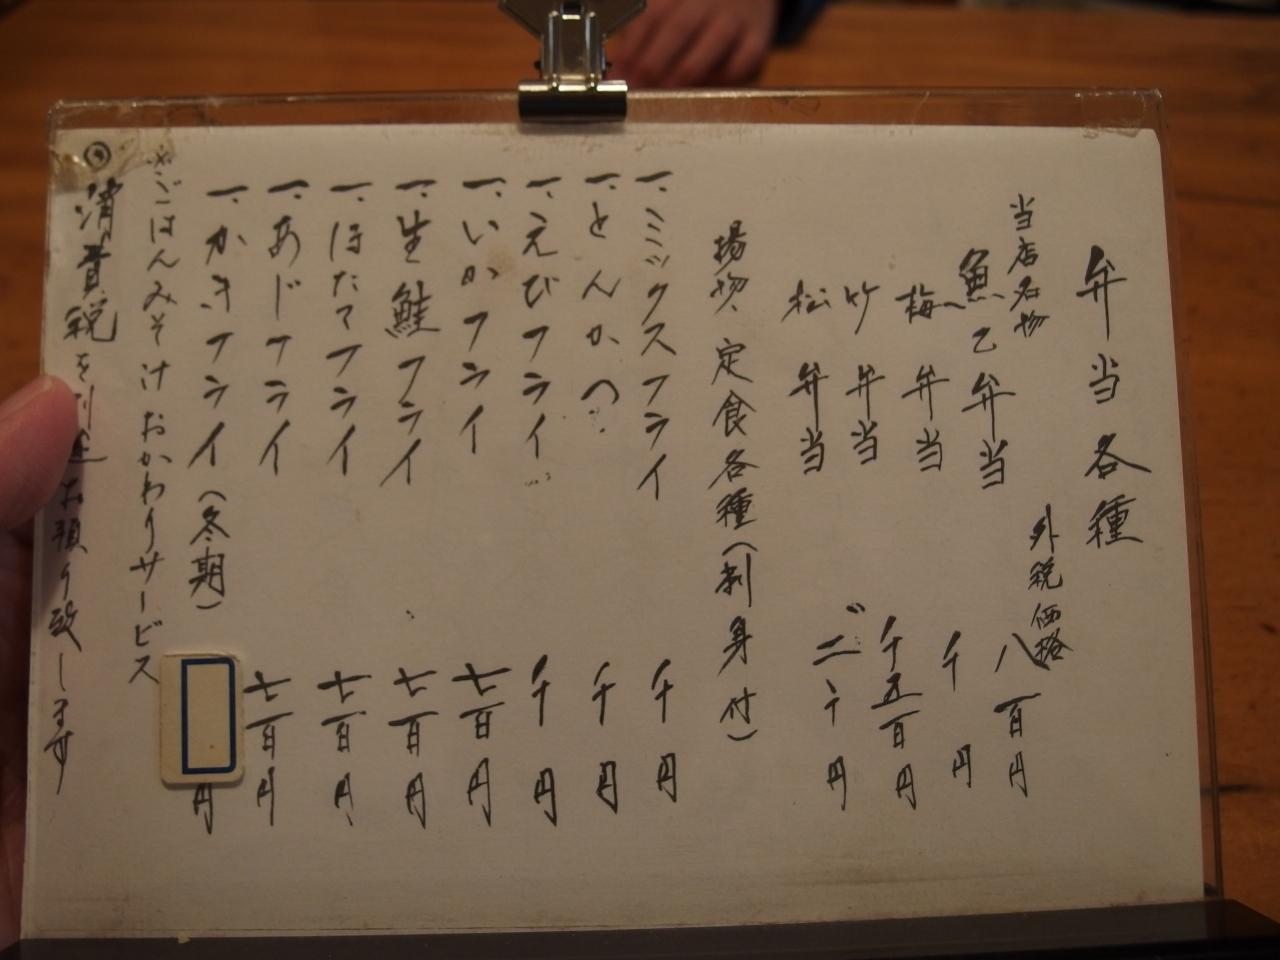 弁当各種
外税価格
当店名物
魚乙弁当 八百円
梅弁当 千円
竹弁当 千五百円
松弁当 二千円
揚物、定食各種(刺身付)
一、ミックスフライ 千円
一、とんかつ 千円
一、えびフライ 千円
一、いかフライ 七百円
一、生鮭フライ 七百円
一、ほたてフライ 七百円
一、あじフライ 七百円
一、かきフライ(冬期) 円
※ごはんみそ汁おかわりサービス
◎消費税を別途お預り致します